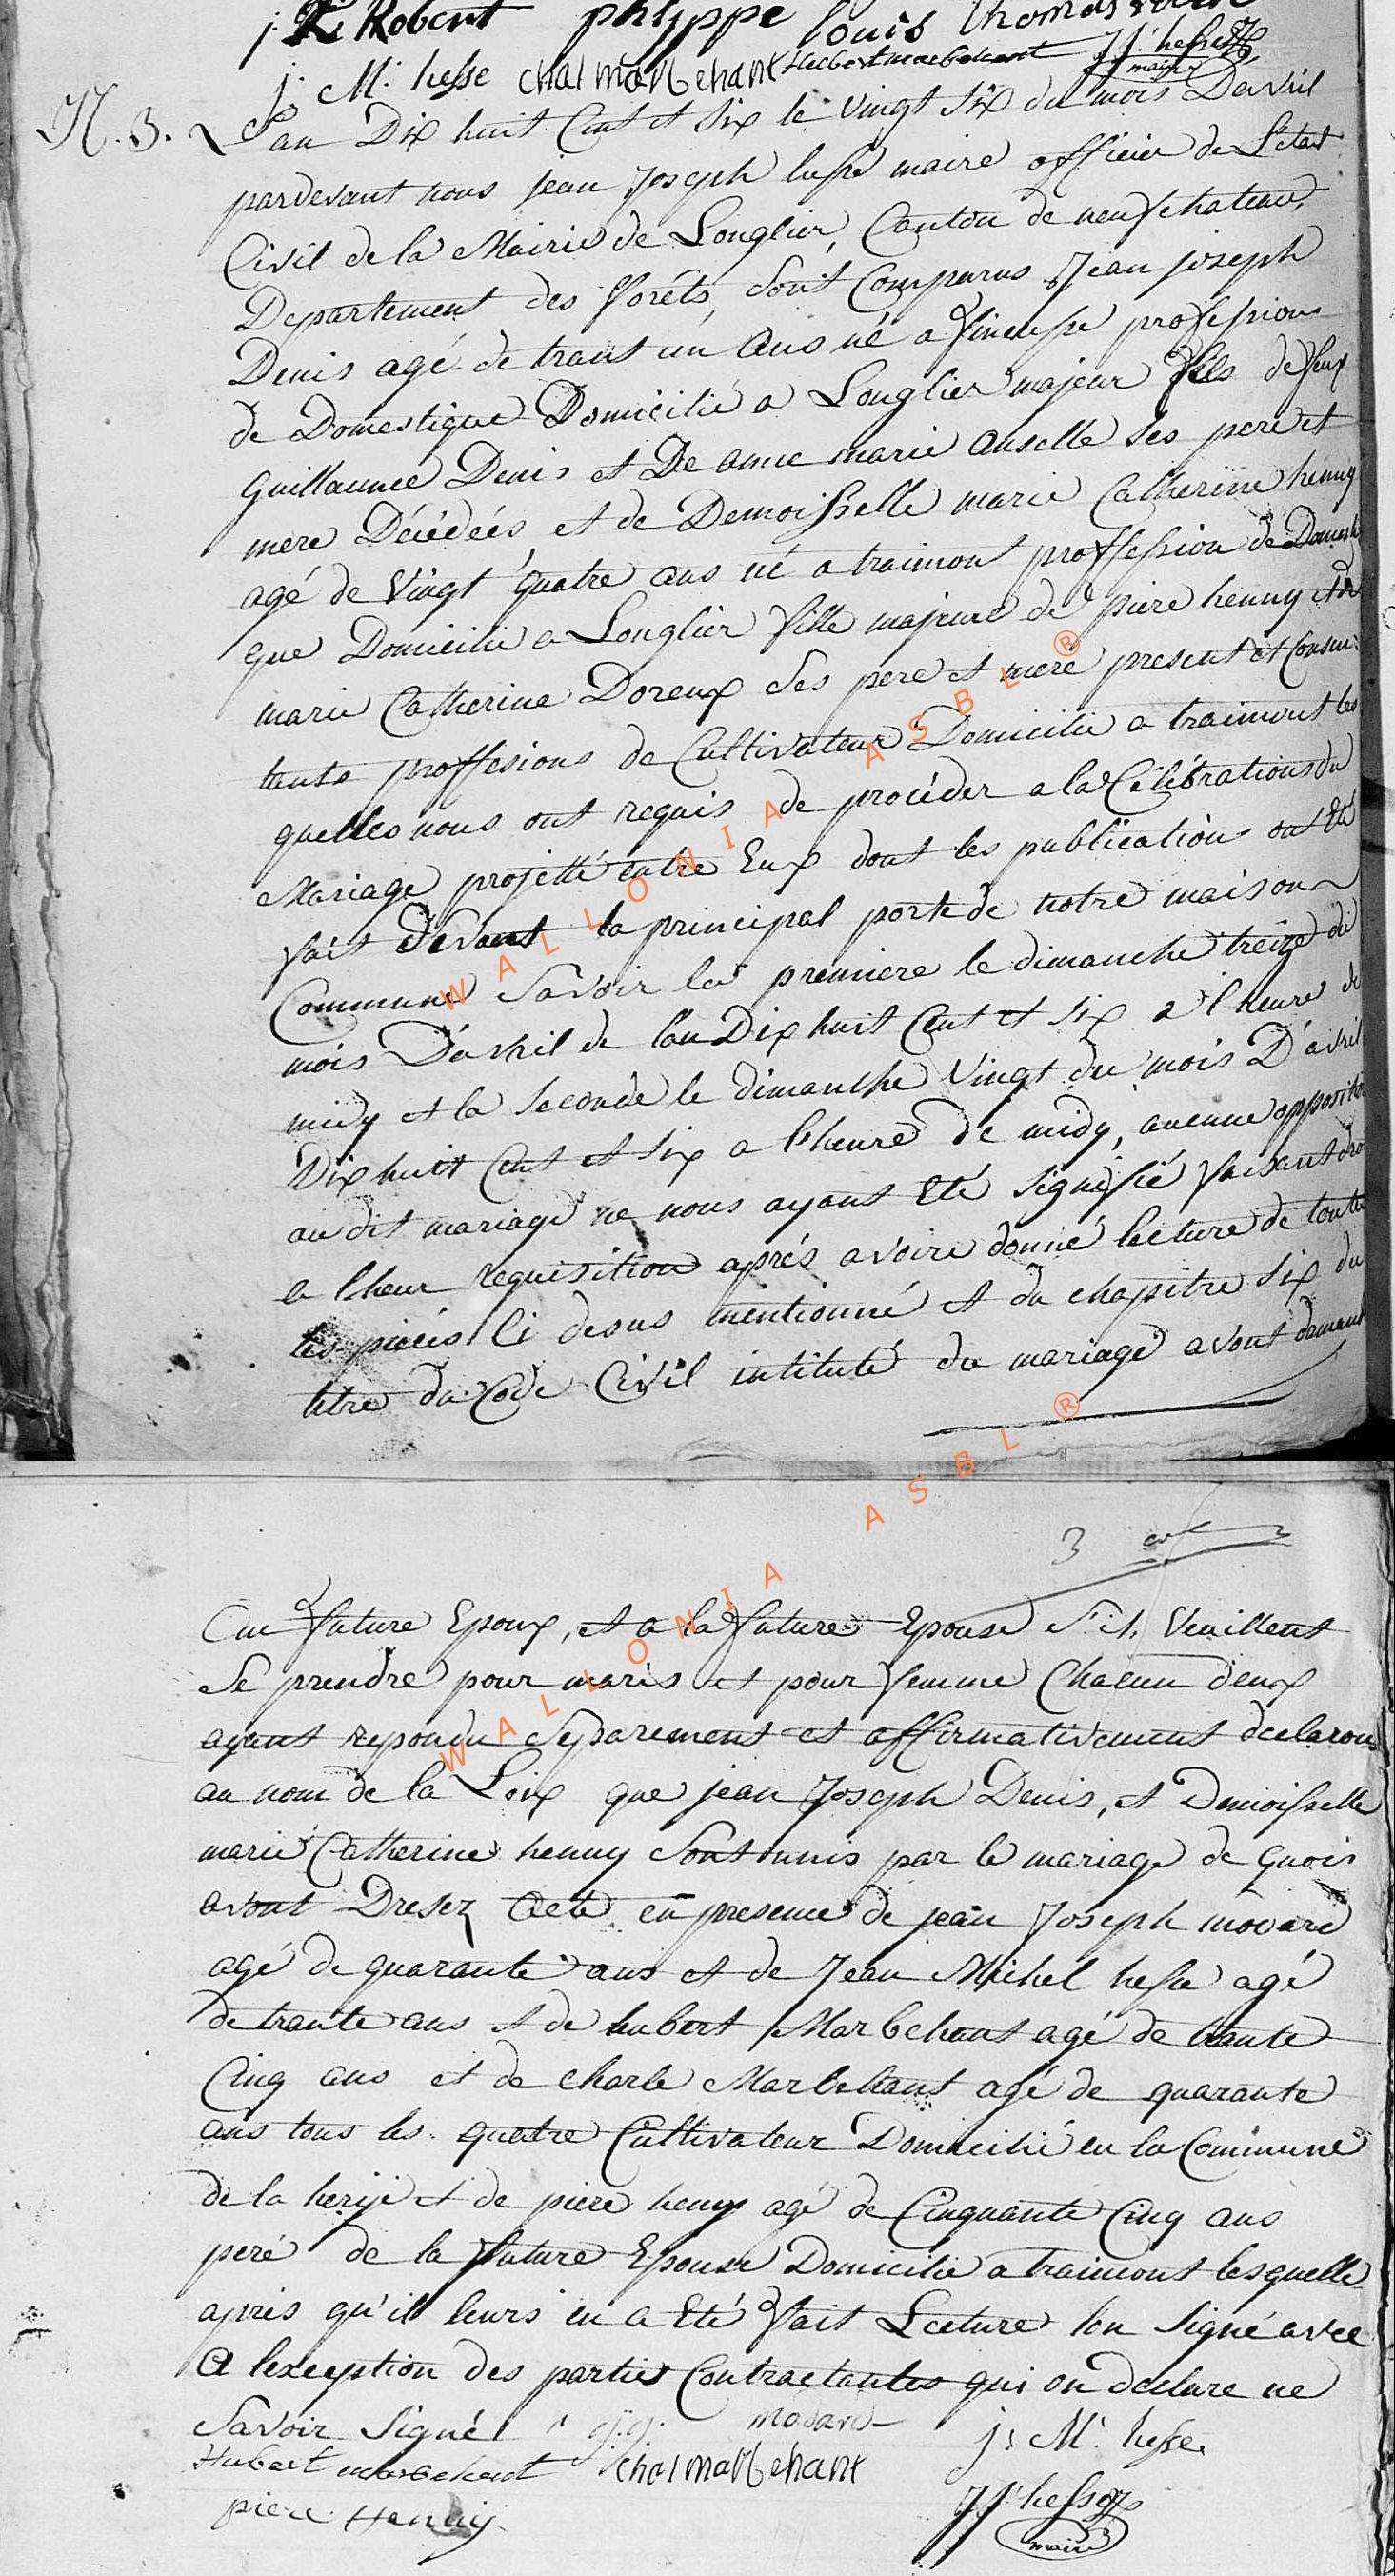 j. L. Robert phlyppe louis thomas
j. M. hesse chalmarbehant Hubert marbehant JJ. hesse
maire
N. 3. L'an Dix huit Cent et six le vingt six du mois D'avril
pardevant nous jean joseph hesse maire officier de L'etat
Civil de la Mairie de Longlier, Canton de neufchateau,
Departement des forêts, sont Comparus Jean joseph
Denis agé de trant un ans né a professions
de Domestique Domicilié a Longlier majeur fils de feux
Guillaumee Denis et De anne marie anselle ses pere et
mere Décédées et de Demoisselle marie Catherine henny
agé de Vingt quatre ans né a traimont proffession de Domesti
que Domicilie a Longlier fille majeure de piere henny et De
marie Catherine Doreux ses pere et mere present et Consen
tents proffesions de Cultivateur Domicilie a traimont les
quelles nous ont requis de procéder a la Célébrations du
Mariage projetté entre Eux dont les publications ont Eté
fait devant la principal porte de notre maison
Commune Savoir la premiere le dimanche treize du
mois D'avril de l'an Dix huit Cent et six a l'heure de
midy et la seconde le dimanche Vingt du mois D'avril
Dix huit Cent et six a l'heure de midy, aucune oppositio
au dit mariage ne nous ayant Eté signifié faisant dro
a lheur requisition aprés avoire donné lecture de toute
les pieces Ci desus mentionné et du chapitre six du
titre du Code Civil intitulé du mariage avont demant
3
Au future Epoux, et a la future Epouse S'il, Veuillent
Se prendre pour maris et pour femme Chacun deux
ayant repondu Separement et affirmativement declarons
au nom de la Loix que jean Joseph Denis, et Demoisselle
marie Catherine henny Sont unnis par le mariage de quois
avont Dresez acte en presence de jean Joseph movare
agé de quarante ans et de Jean Michel hesse agé
de trante ans et de hubert Marbehant agé de trante
Cinq ans et de Charle Marbehant agé de quarante
ans tous les quatre Cultivateur Domicilié en la Commune
de la herije et de piere heny agé de Cinquante Cinq ans
peré de la future Epouse Domicilie a traimont lesquelle
aprés qu'il leurs en a Eté fait Lecture l'on signé avec
A lexception des parties Contractantes qui on declare ne
Savoir Signé movare j. M. hesse
Hubert marbehant chalmarbehant
piere Henny JJ. hesse
maire
WALLONIA ASBL ®
WALLONIA ASBL ®